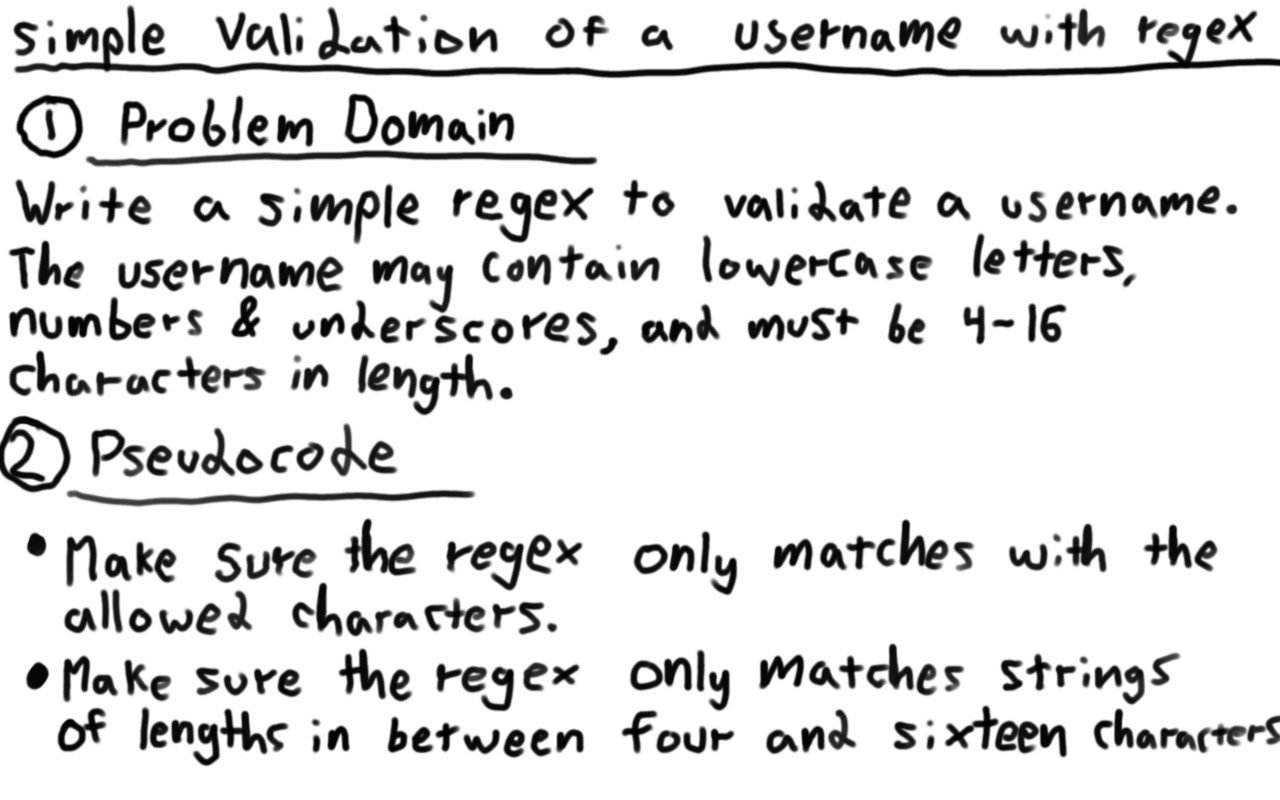 simple Validation of a username with regex
① Problem Domain
Write a simple regex to validate a username.
The username may contain lowercase letters,
numbers & underscores, and must be 4-16
characters in length.
② Pseudocode
• Make sure the regex only matches with the
allowed characters.
• Make sure the regex only matches strings
of lengths in between four and sixteen characters